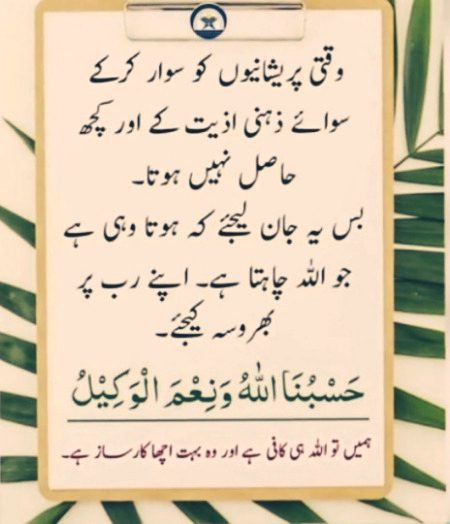 وقتی پریشانیوں کو سوار کرکے
سوائے ذہنی اذیت کے اور کچھ
حاصل نہیں ہوتا۔
بس یہ جان لیجئے کہ ہوتا وہی ہے
جو اللہ چاہتا ہے۔ اپنے رب پر
بھروسہ کیجئے۔
حَسْبُنَا اللّٰهُ وَنِعْمَ الْوَكِيْلُ
ہمیں تو اللہ ہی کافی ہے اور وہ بہت اچھا کارساز ہے۔